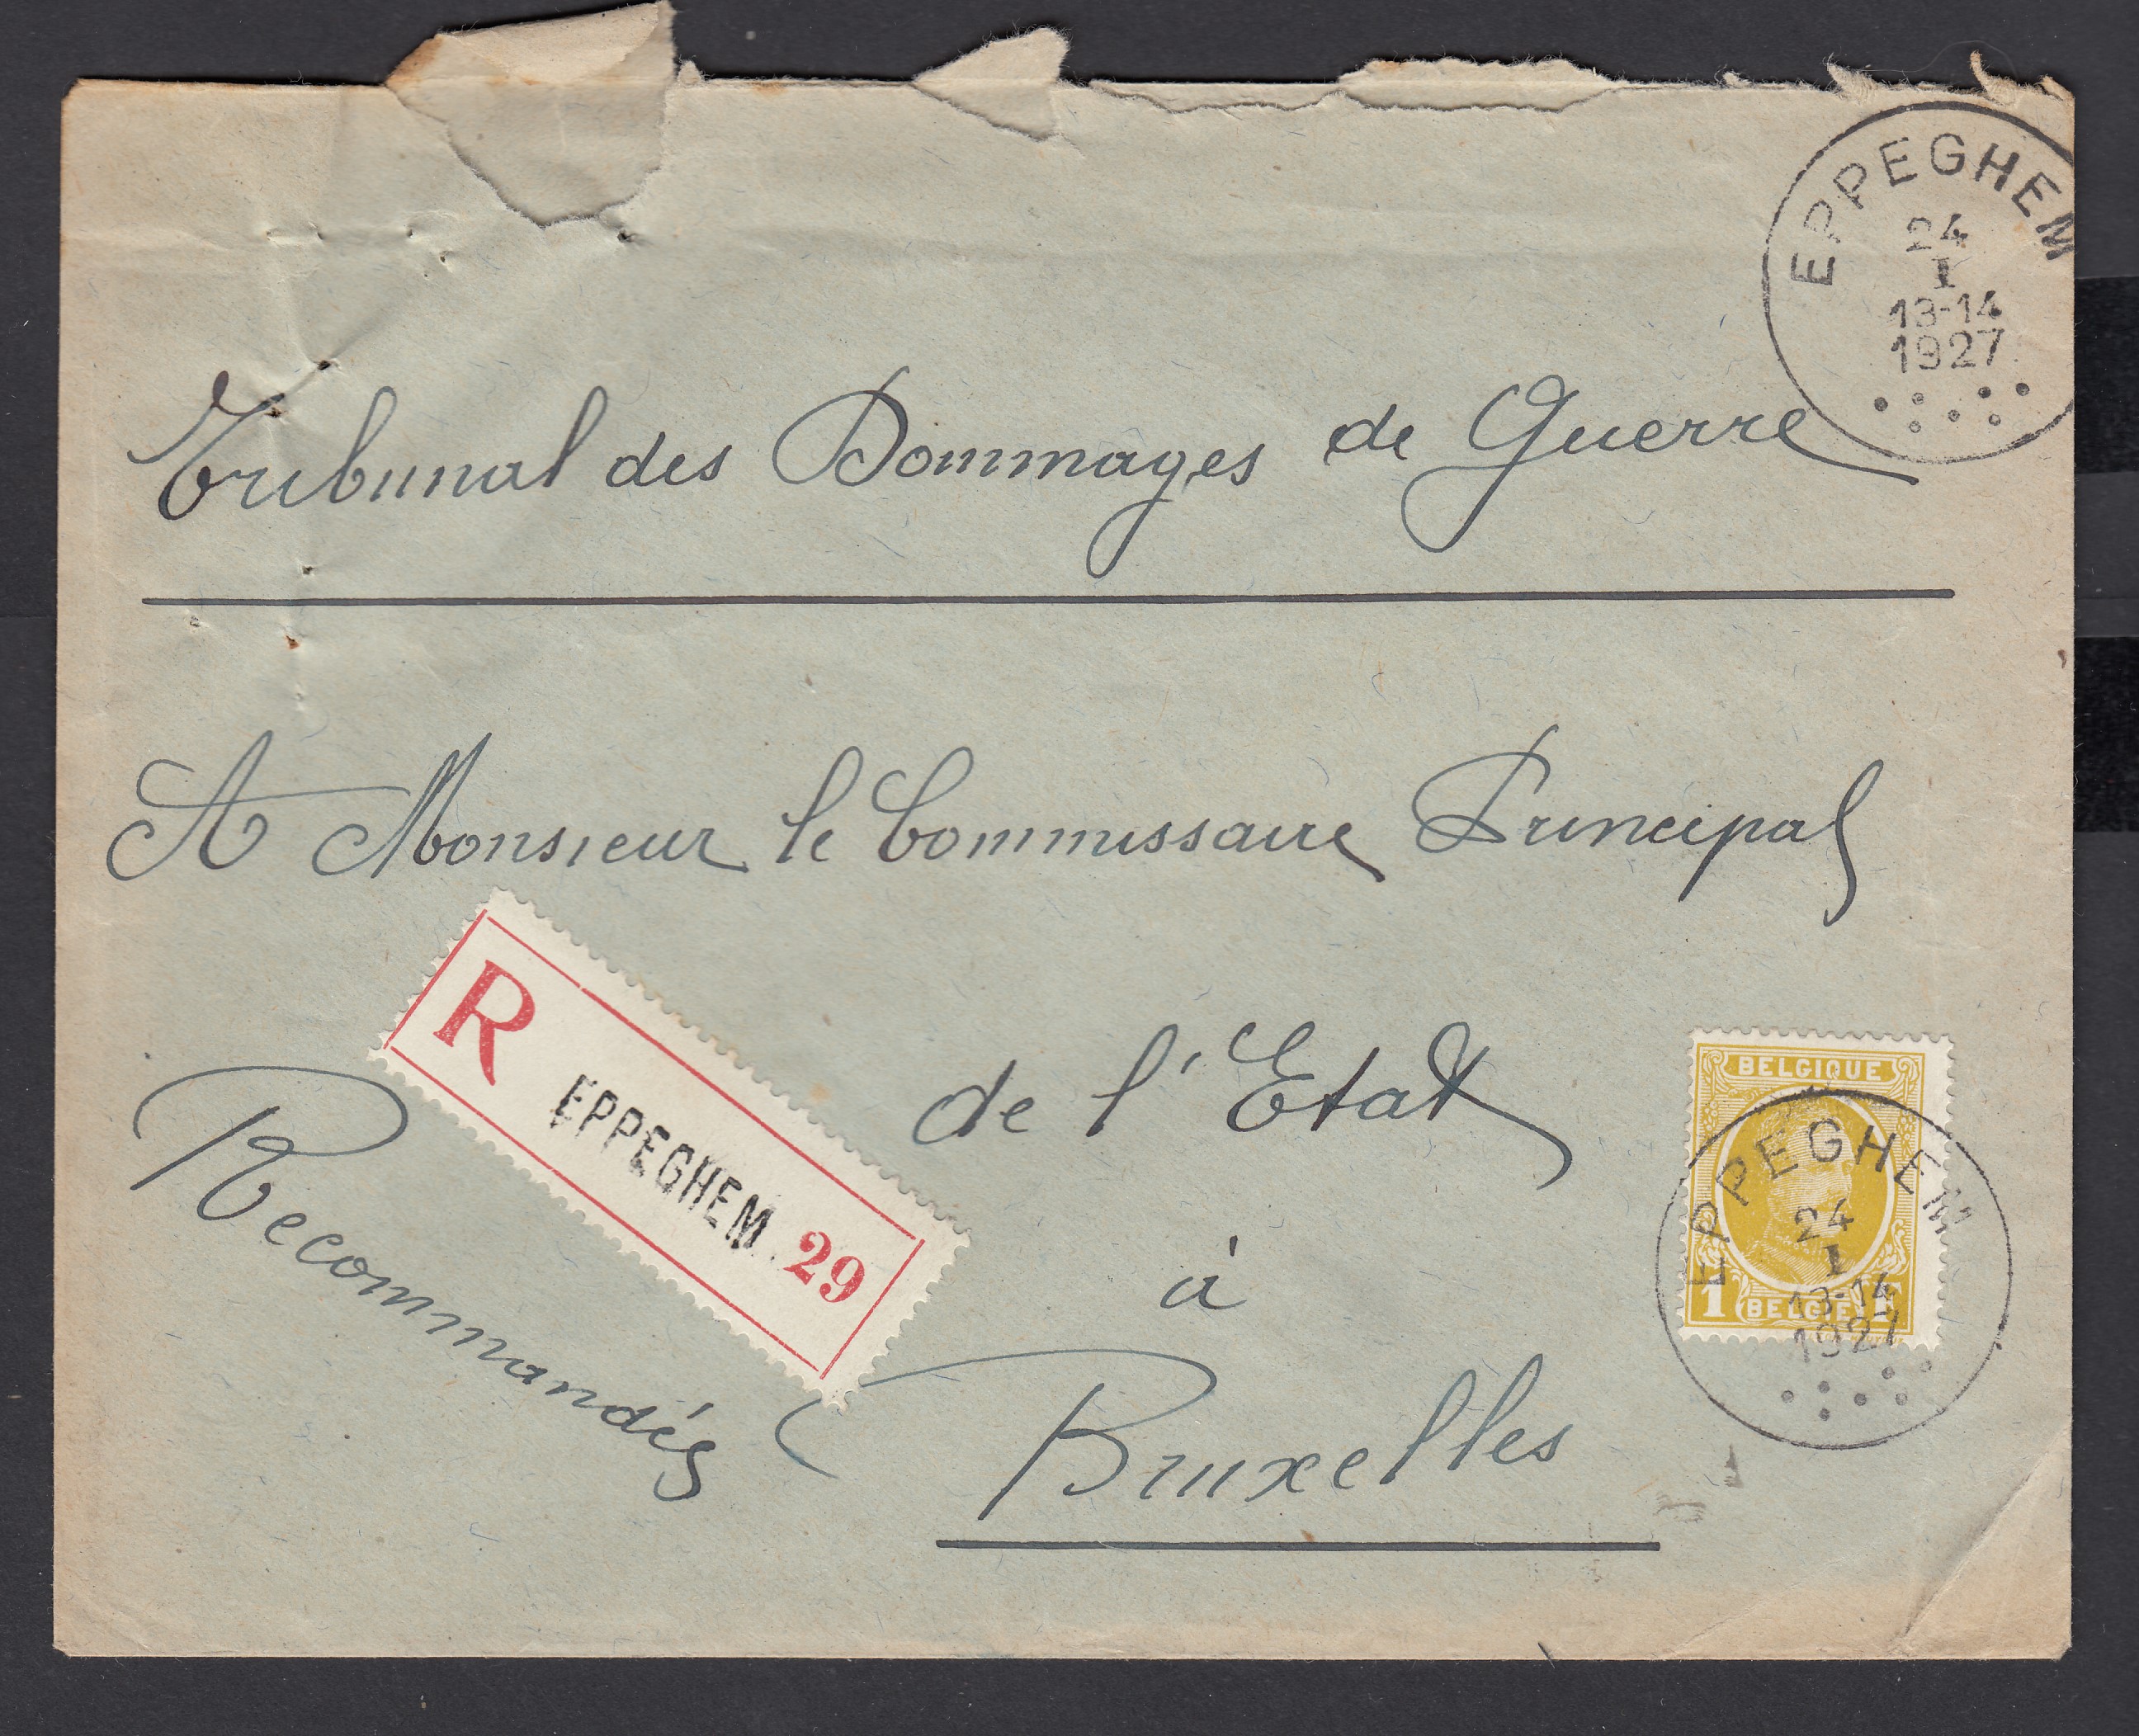 EPPEGHEM
24
I
13-14
1927
Tribunal des Dommages de Guerre
A Monsieur le Commissaire Principal
de l'Etat
à
Bruxelles
Recommandés
R EPPEGHEM. 29
BELGIQUE
1 BELGIË 1F
EPPEGHEM
24
I
13-14
1927